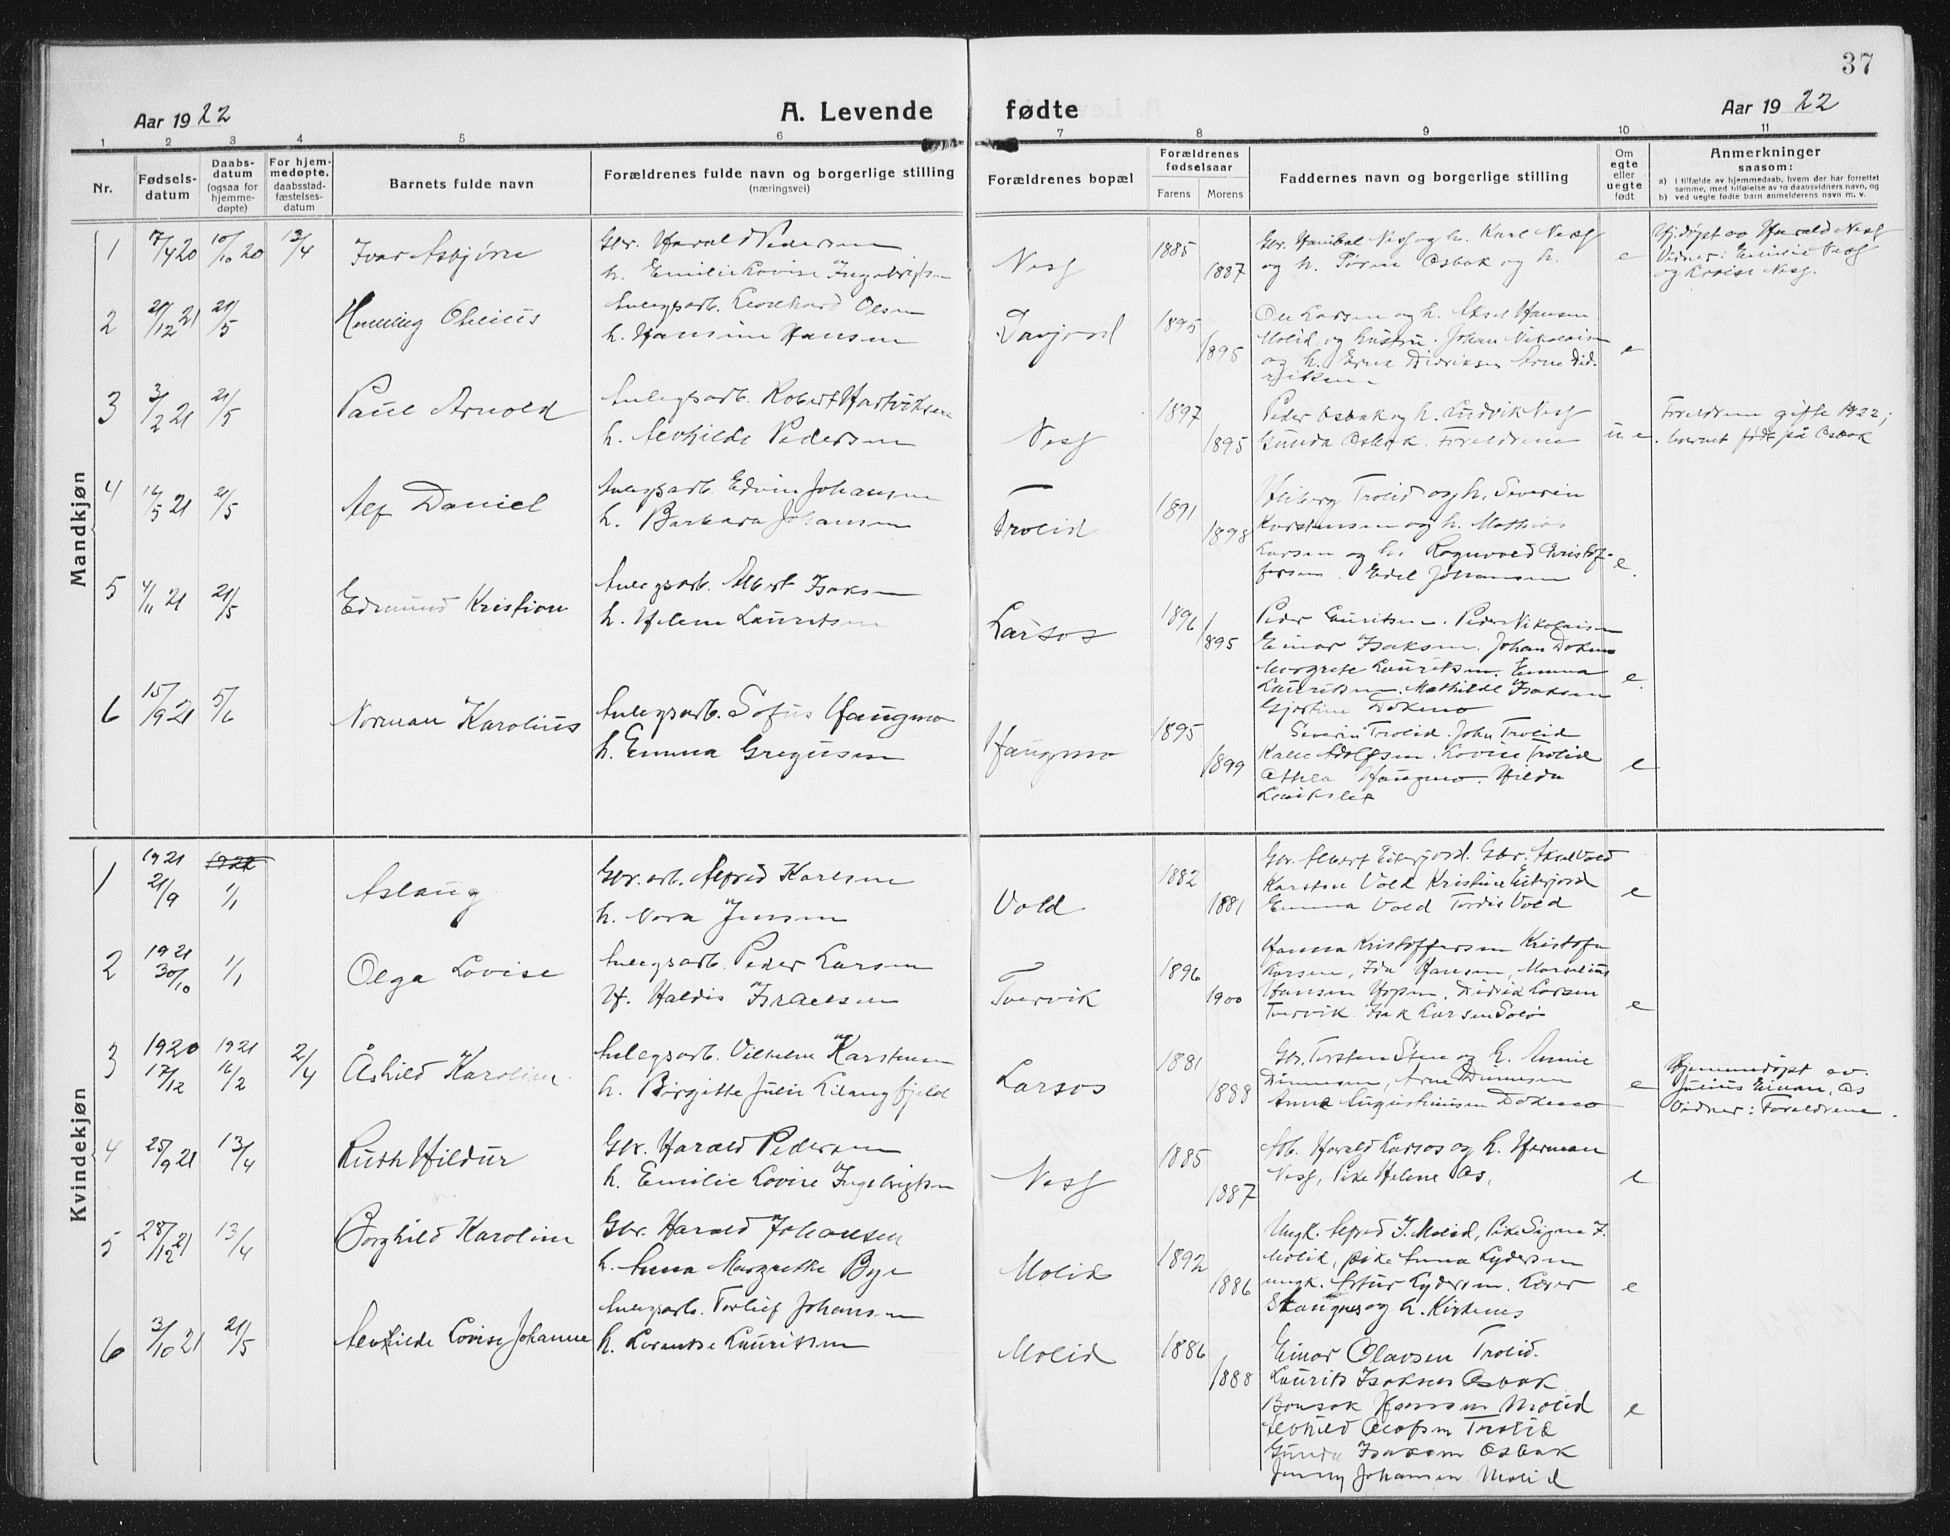 37
Aar 1922
A. Levende fødte
Aar 1922
1 2 3 4 5 6 7 8 9 10 11
Nr.
Fødsels-
datum
Daabs-
datum
(ogsaa for
hjemme-
døpte)
For hjem-
medøpte.
daabsstad-
fæstelses-
datum
Barnets fulde navn
Forældrenes fulde navn og borgerlige stilling
(næringsvei)
Forældrenes bopæl
Forældrenes
fødselsaar
Farens Morens
Faddernes navn og borgerlige stilling
Om
egte
eller
uegte
født
Anmerkninger
saasom:
a) i tilfælde av hjemmedaab, hvem der har forrettet
samme, med tilføielse av to daabsvidners navn, og
b) ved uegte fødte barn anmelderens navn m. v.
Mandkjøn
1 7/4 20 10/10 20 13/4 Ivar Asbjørn
Gbr. Harald Pedersen
h. Emilie Lovise Ingebrigtsen
Nesf 1885 1887
Gbr. Hanibal Nesf og h. Karl Nesf
og h. Søren Osbak og h.
e
Hj.døpt av Harald Nesf
Vidner: Emilie Nesf
og Lovise Nesf.
2 21/12 21 21/5 Henning Olelius
Anlegsarb. Leonhard Olsen
h. Hansine Hansen
Davjord 1895 1895
Ole Larsen og h. Aksel Hansen
Molid og hustru. Johan Nikolaisen
og h. Erne Didriksen Arne Did-
riksen
e
3 3/2 21 21/5 Paul Arnold
Anlegsarb. Robert Hartviksen
h. Alvhilde Pedersen
Nesf 1897 1895
Peder Osbak og h. Ludvik Nesf
Gunda Osbak. Foreldrene
u e.
Foreldrene gifte 1922;
barnet født på Osbak
4 16/5 21 21/5 Alf Daniel
Anlegsarb. Edvin Johansen
h. Barbara Johansen
Trolid 1891 1898
Hiberg Trolid og h. Severin
Karstensen og h. Mathias
Larsen og h. Ragnvald Kristof-
fersen. Edel Johansen
e.
5 4/11 21 21/5 Edmund Kristian
Anlegsarb. Albert Isaksen
h. Helene Lauritsen
Larsos 1896 1895
Peder Lauritsen. Peder Nikolaisen
Einar Isaksen. Johan Dokmo
Margrete Lauritsen. Emma
Lauritsen. Mathilde Isaksen
Gjertine Dokmo
e.
6 15/9 21 5/6 Norman Karolius
Anlegsarb. Sofus Haugmo
h. Emma Gregusen
Haugmo 1895 1899
Severin Trolid. John Trolid
Kalle Adolfsen. Lovise Trolid
Othea Haugmo. Hilda
e
Kvindekjøn
1 1921 21/9 1/1 Aslaug
Gbr. arb. Alfred Karlsen
h. Nora Jensen
Vold 1882 1881
Gbr. Albert Eiterjord. Gbr. Aksel Vold
Karsten Vold Kristine Eiterjord
Emma Vold Tordis Vold
e
2 1921 30/10 1/1 Olga Lovise
Anlegsarb. Peder Larsen
H. Haldis Israelsen
Tvervik 1896 1900
Hanna Kristoffersen Kristofer
Larsen, Ida Hansen, Marselius
Hansen Hopen, Didrik Larsen
Tvervik. Isak Larsen Soløi
e
3 1920 17/12 1921 16/2 2/4 Åshild Karoline
Anlegsarb. Vilhelm Karstensen
h. Birgitte Julie Lilangfjeld
Larsos 1881 1888
Gbr. Torsten Sten og h. Annie
Dinnesen, Arne Dinnesen
Anna Augustinusen Dokmo
e
Hjemmedøpt av
Julius Einan, Os
Vidner: Foreldrene.
4 25/9 21 13/4 Ruth Hildur
Gbr. Harald Pedersen
h. Emilie Lovise Ingebrigtsen
Nesf 1885 1887
Arb. Harald Larsos og h. Herman
Nesf, Pike Helene Os,
e
5 28/12 21 13/4 Borghild Karoline
Gbr. Harald Johansen
h. Anna Margrethe Bye
Molid 1892 1886
Ungk. Alfred J. Molid, Pike Signe J.
Molid, pike Anna Lydersen
ungk. Artur Lydersen. Lærer
Skaugnes og h. Kirkenes
e
6 3/10 21 21/5 Alvhilde Lovise Johanne
Anlegsarb. Torleif Johansen
h. Lorentse Lauritsen
Molid 1886 1888
Einar Olavsen Trolid.
Laurits Isaksen Osbak
Bonsak Hansen Molid
Alvhild Olafsen Trolid
Gunda Isaksen Osbak
Jenny Johansen Molid
e